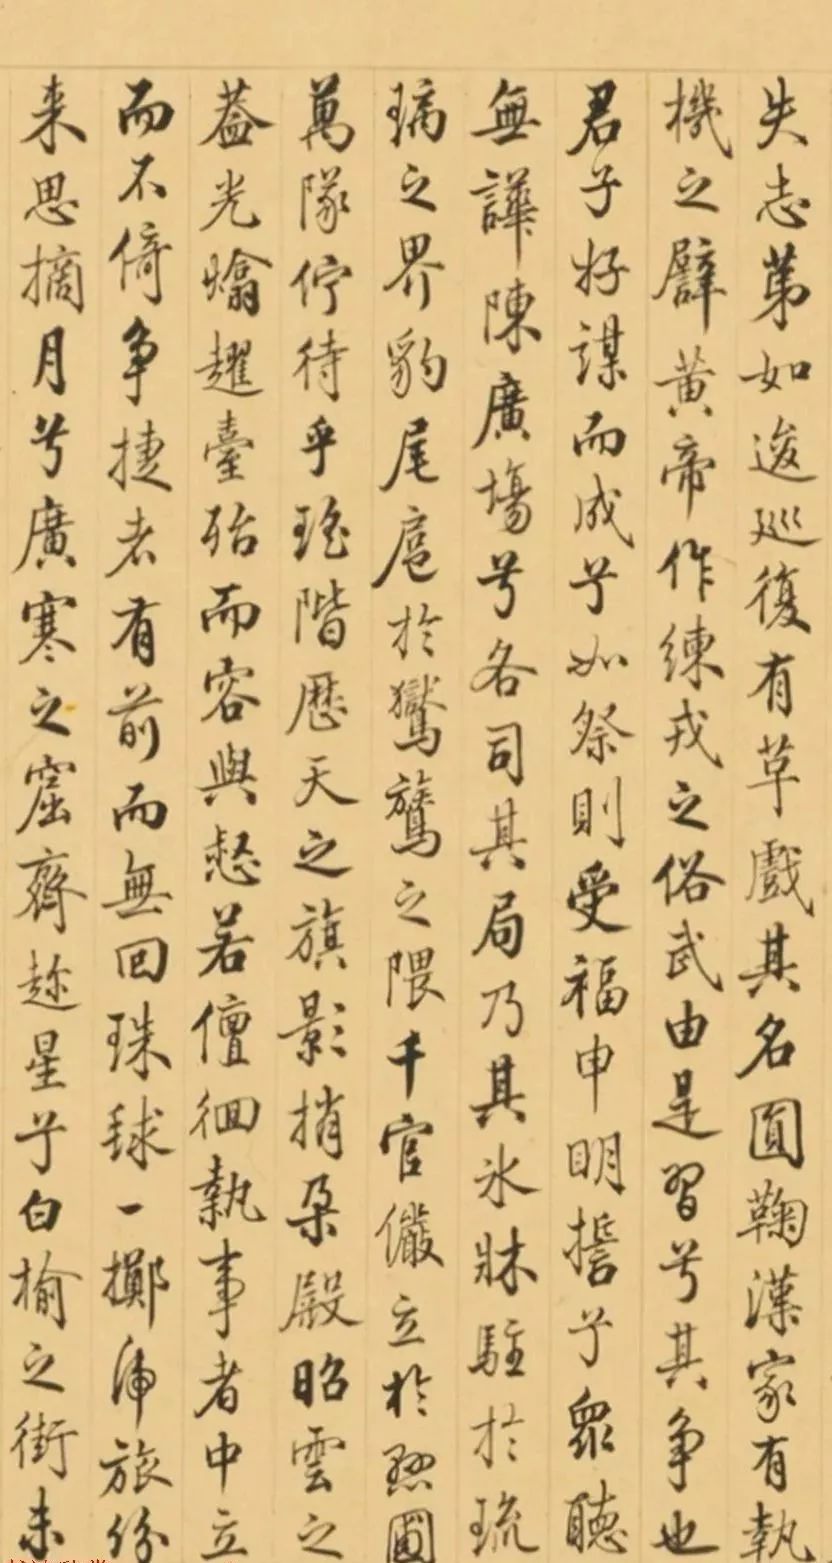 失志第如逡巡復有草戲其名圓鞠漢家有執
機之躃黄帝作練戎之俗武由是習兮其争也
君子好謀而成兮如祭則受福申明誓兮衆聽
無譁陳廣場兮各司其局乃其氷牀駐於琉
璃之界豹尾扈於鸑鷟之隈千官儼立於懸圃
萬隊佇待乎瑤階歴天之旗影捎朶殿昭雲之
葢光爚趯臺殆而容與愻若儃佪執事者中立
而不倚争捷者有前而無回珠毬一擲虎旅紛
来思摘月兮廣寒之窟齊趂星兮白榆之街未